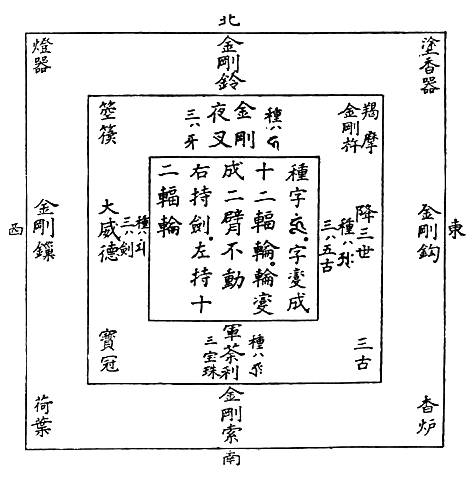 北
塗香器
金剛鈴
燈器
羯摩
金剛杵
種ハ
金剛
夜叉
三ハ牙
箜篌
東
金剛鈎
降三世
種ハ
三ハ五古
種字 字変成
十二輻輪。輪変
成二臂不動
右持劍。左持十
二輻輪
大威德
種ハ
三ハ劍
金剛鏁
西
三古
種ハ
軍荼利
三宝珠
寳冠
香炉
金剛索
荷葉
南